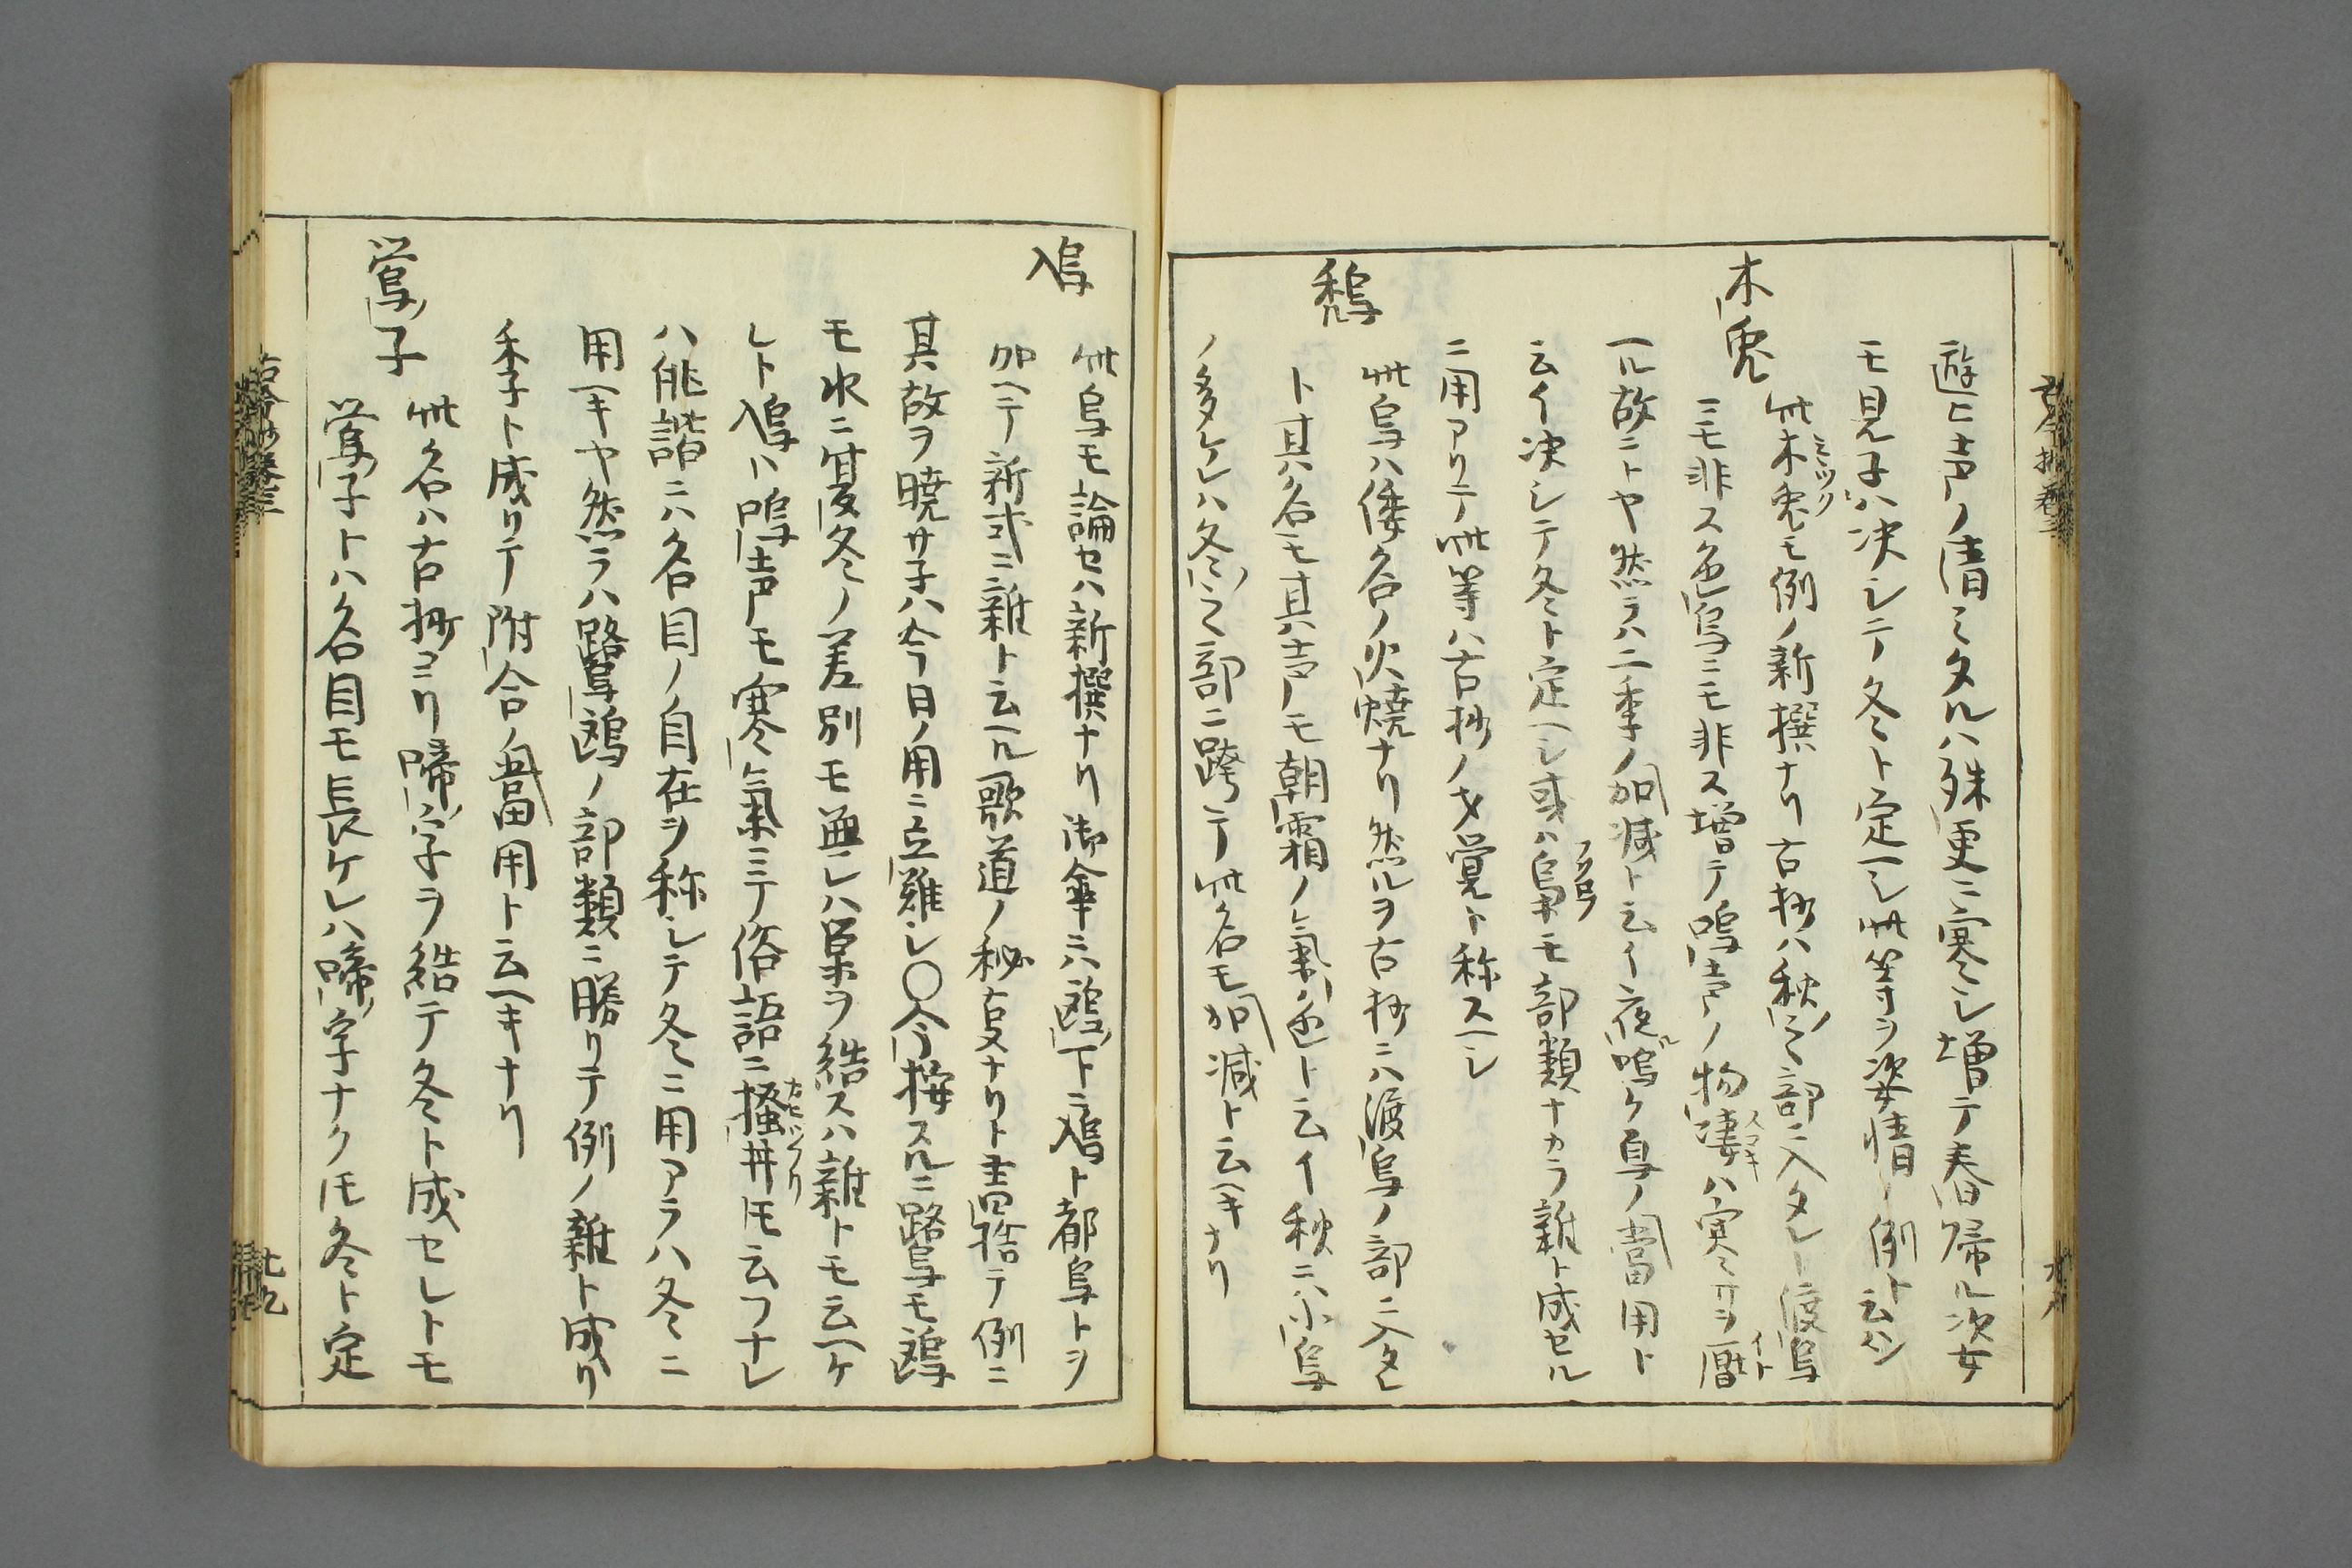 遊ヒ声ノ清ミタルハ殊更ニ寒シ増テ春帰ル次女
モ見子ハ決シテ冬ト定ヘシ此等ヲ姿情ノ例トハ云ハン
木兎
此木兎モ例ノ新撰ナリ古抄ハ秋ノ部ニ入タレト渡鳥
ミミツク
ニモ非ス色鳥ニモ非ス増テ鳴声ノ物凄ハ寒サヲ厭
スコキ
イト
ヘル故ニトヤ然ラハ二季ノ加減ト云イ夜鳴ケ鳥ノ当用ト
云イ決シテ冬ト定ヘシ或ハ梟モ部類ナカラ雑ト成セル
フクロフ
ニ用アリテ此等ハ古抄ノ才覚ト称スヘシ
鵚
此鳥ハ倭名ノ火焼ナリ然ルヲ古抄ニハ渡鳥ノ部ニ入タレ
ト其ハ名モ其ハ声モ朝霜ノ気色ト云イ秋ニハ小鳥
ノ多ケレハ冬ノ部ニ跨テ此名モ加減ト云ヘキナリ
鳰
此鳥モ論セハ新撰ナリ御傘ニハ鴎ノ下ニ鳰ト都鳥トヲ
加ヘテ新式ニ雑ト云ヘル歌道ノ秘事ナリト書捨テ例ニ
其故ヲ暁サ子ハ今日ノ用ニ立難シ〇今按スルニ鷺モ鴎
モ水ニ夏冬ノ差別モ無レハ巣ヲ結スハ雑トモ云ヘケ
レト鳰ハ鳴声モ寒気ニテ俗語ニ掻井モ云フナレ
カヒツフリ
ハ俳諧ニハ名目ノ自在ヲ称シテ冬ニ用アラハ冬ニ
用ヘキヤ然ラハ鷺鴎ノ部類ニ勝リテ例ノ雑ト成リ
季ト成リテ附合ノ当用ト云ヘキナリ
鶯子
此名ハ古抄ヨリ啼字ヲ結テ冬ト成セレトモ
鶯子トハ名目モ長ケレハ啼ノ字ナクモ冬ト定
古今抄巻三